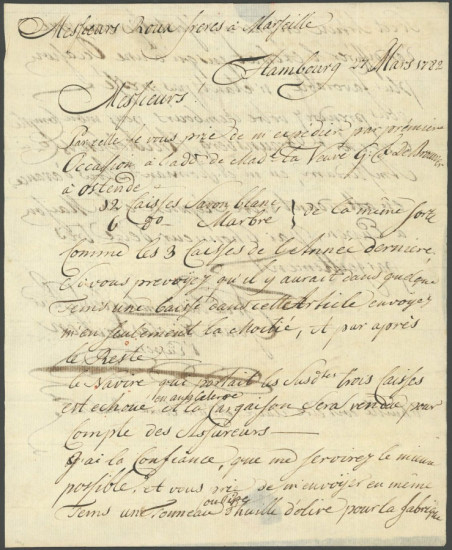 Messieurs Roux freres à Marseille
Hambourg 21 Mars 1782
Messieurs
Par celle je vous prie de m'expedier par premiere
Occasion à l'adr. de Mad. la Veuve G. C. de
à Ostende
12 Caisses Savon blanc
6 do Marbre } de la même sorte
comme les 3 Caisses de l'Année derniere
Si vous prevoyez qu'il y aurait dans quelque
Tems une baisse dans cette Article envoyez
m'en seulement la Moitié, et par après
le Reste
le Navire que portait les Susdtes trois Caisses
est echoué en angleterre et la Cargaison sera vendue pour
Compte des Assureurs
J'ai la Confiance, que me servirez le mieux
possible, et vous prie de m'envoyer en même
Tems un Tonneau ou Pipe d'huille d'olive pour la fabrique